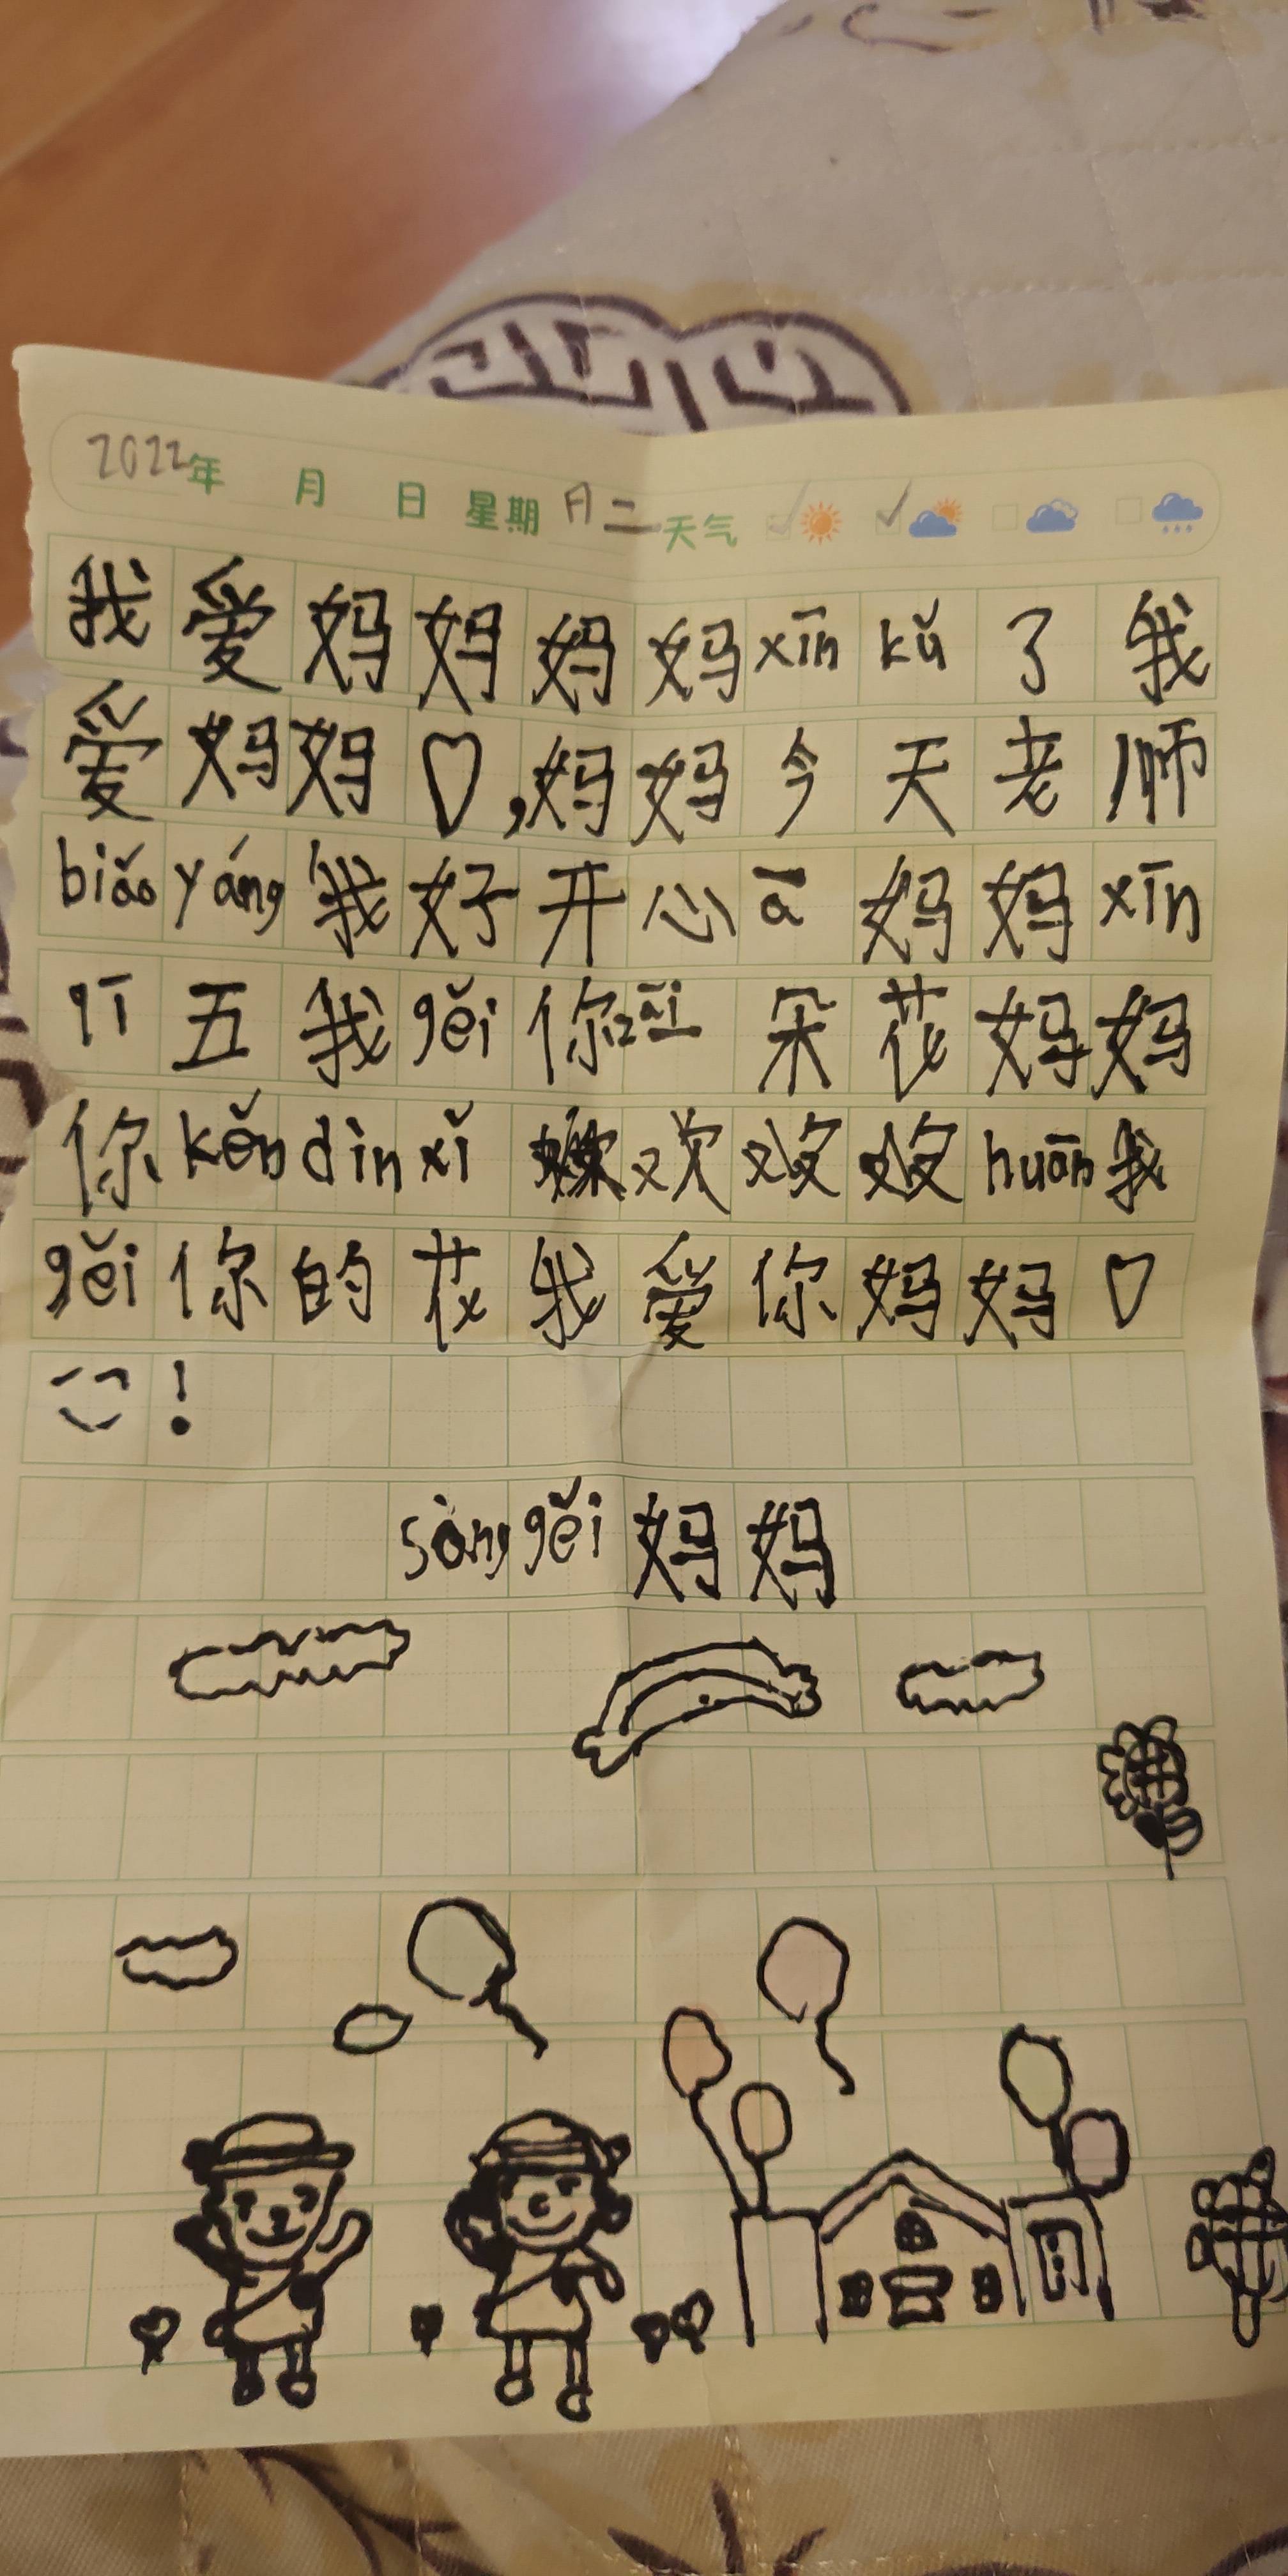 2022年 月 日 星期 月二 天气
我爱妈妈妈妈xīn kǔ了我
爱妈妈♡,妈妈今天老师
biǎo yáng我好开心ā妈妈xīn
qī五我gěi你zāi一朵花妈妈
你kěn dìn xǐ 欢 huān我
gěi你的花我爱你妈妈♡
!
sòng gěi妈妈